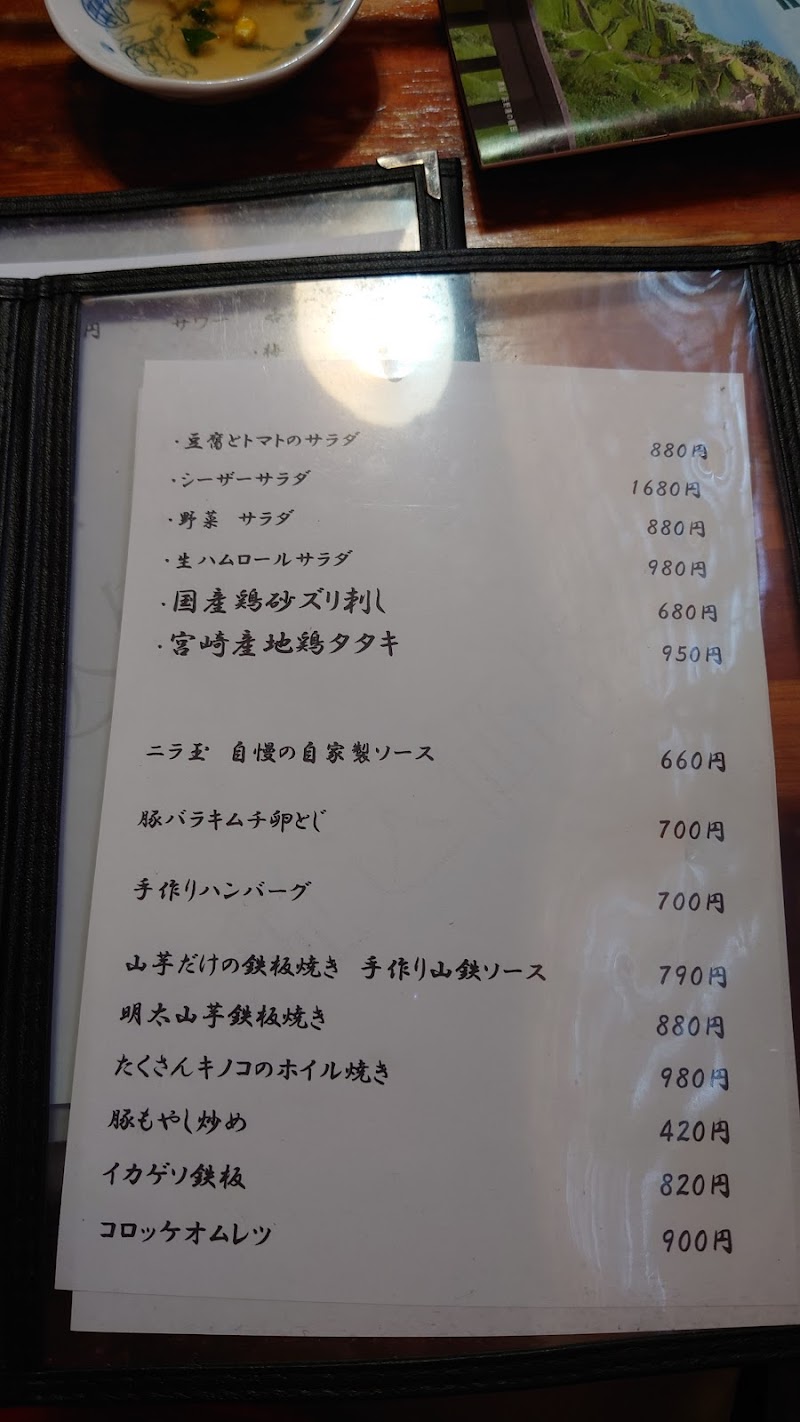 円
サワー
・梅
・豆腐とトマトのサラダ 880円
・シーザーサラダ 1680円
・野菜　サラダ 880円
・生ハムロールサラダ 980円
・国産鶏砂ズリ刺し 680円
・宮崎産地鶏タタキ 950円
ニラ玉　自慢の自家製ソース 660円
豚バラキムチ卵とじ 700円
手作りハンバーグ 700円
山芋だけの鉄板焼き　手作り山鉄ソース 790円
明太山芋鉄板焼き 880円
たくさんキノコのホイル焼き 980円
豚もやし炒め 420円
イカゲソ鉄板 820円
コロッケオムレツ 900円